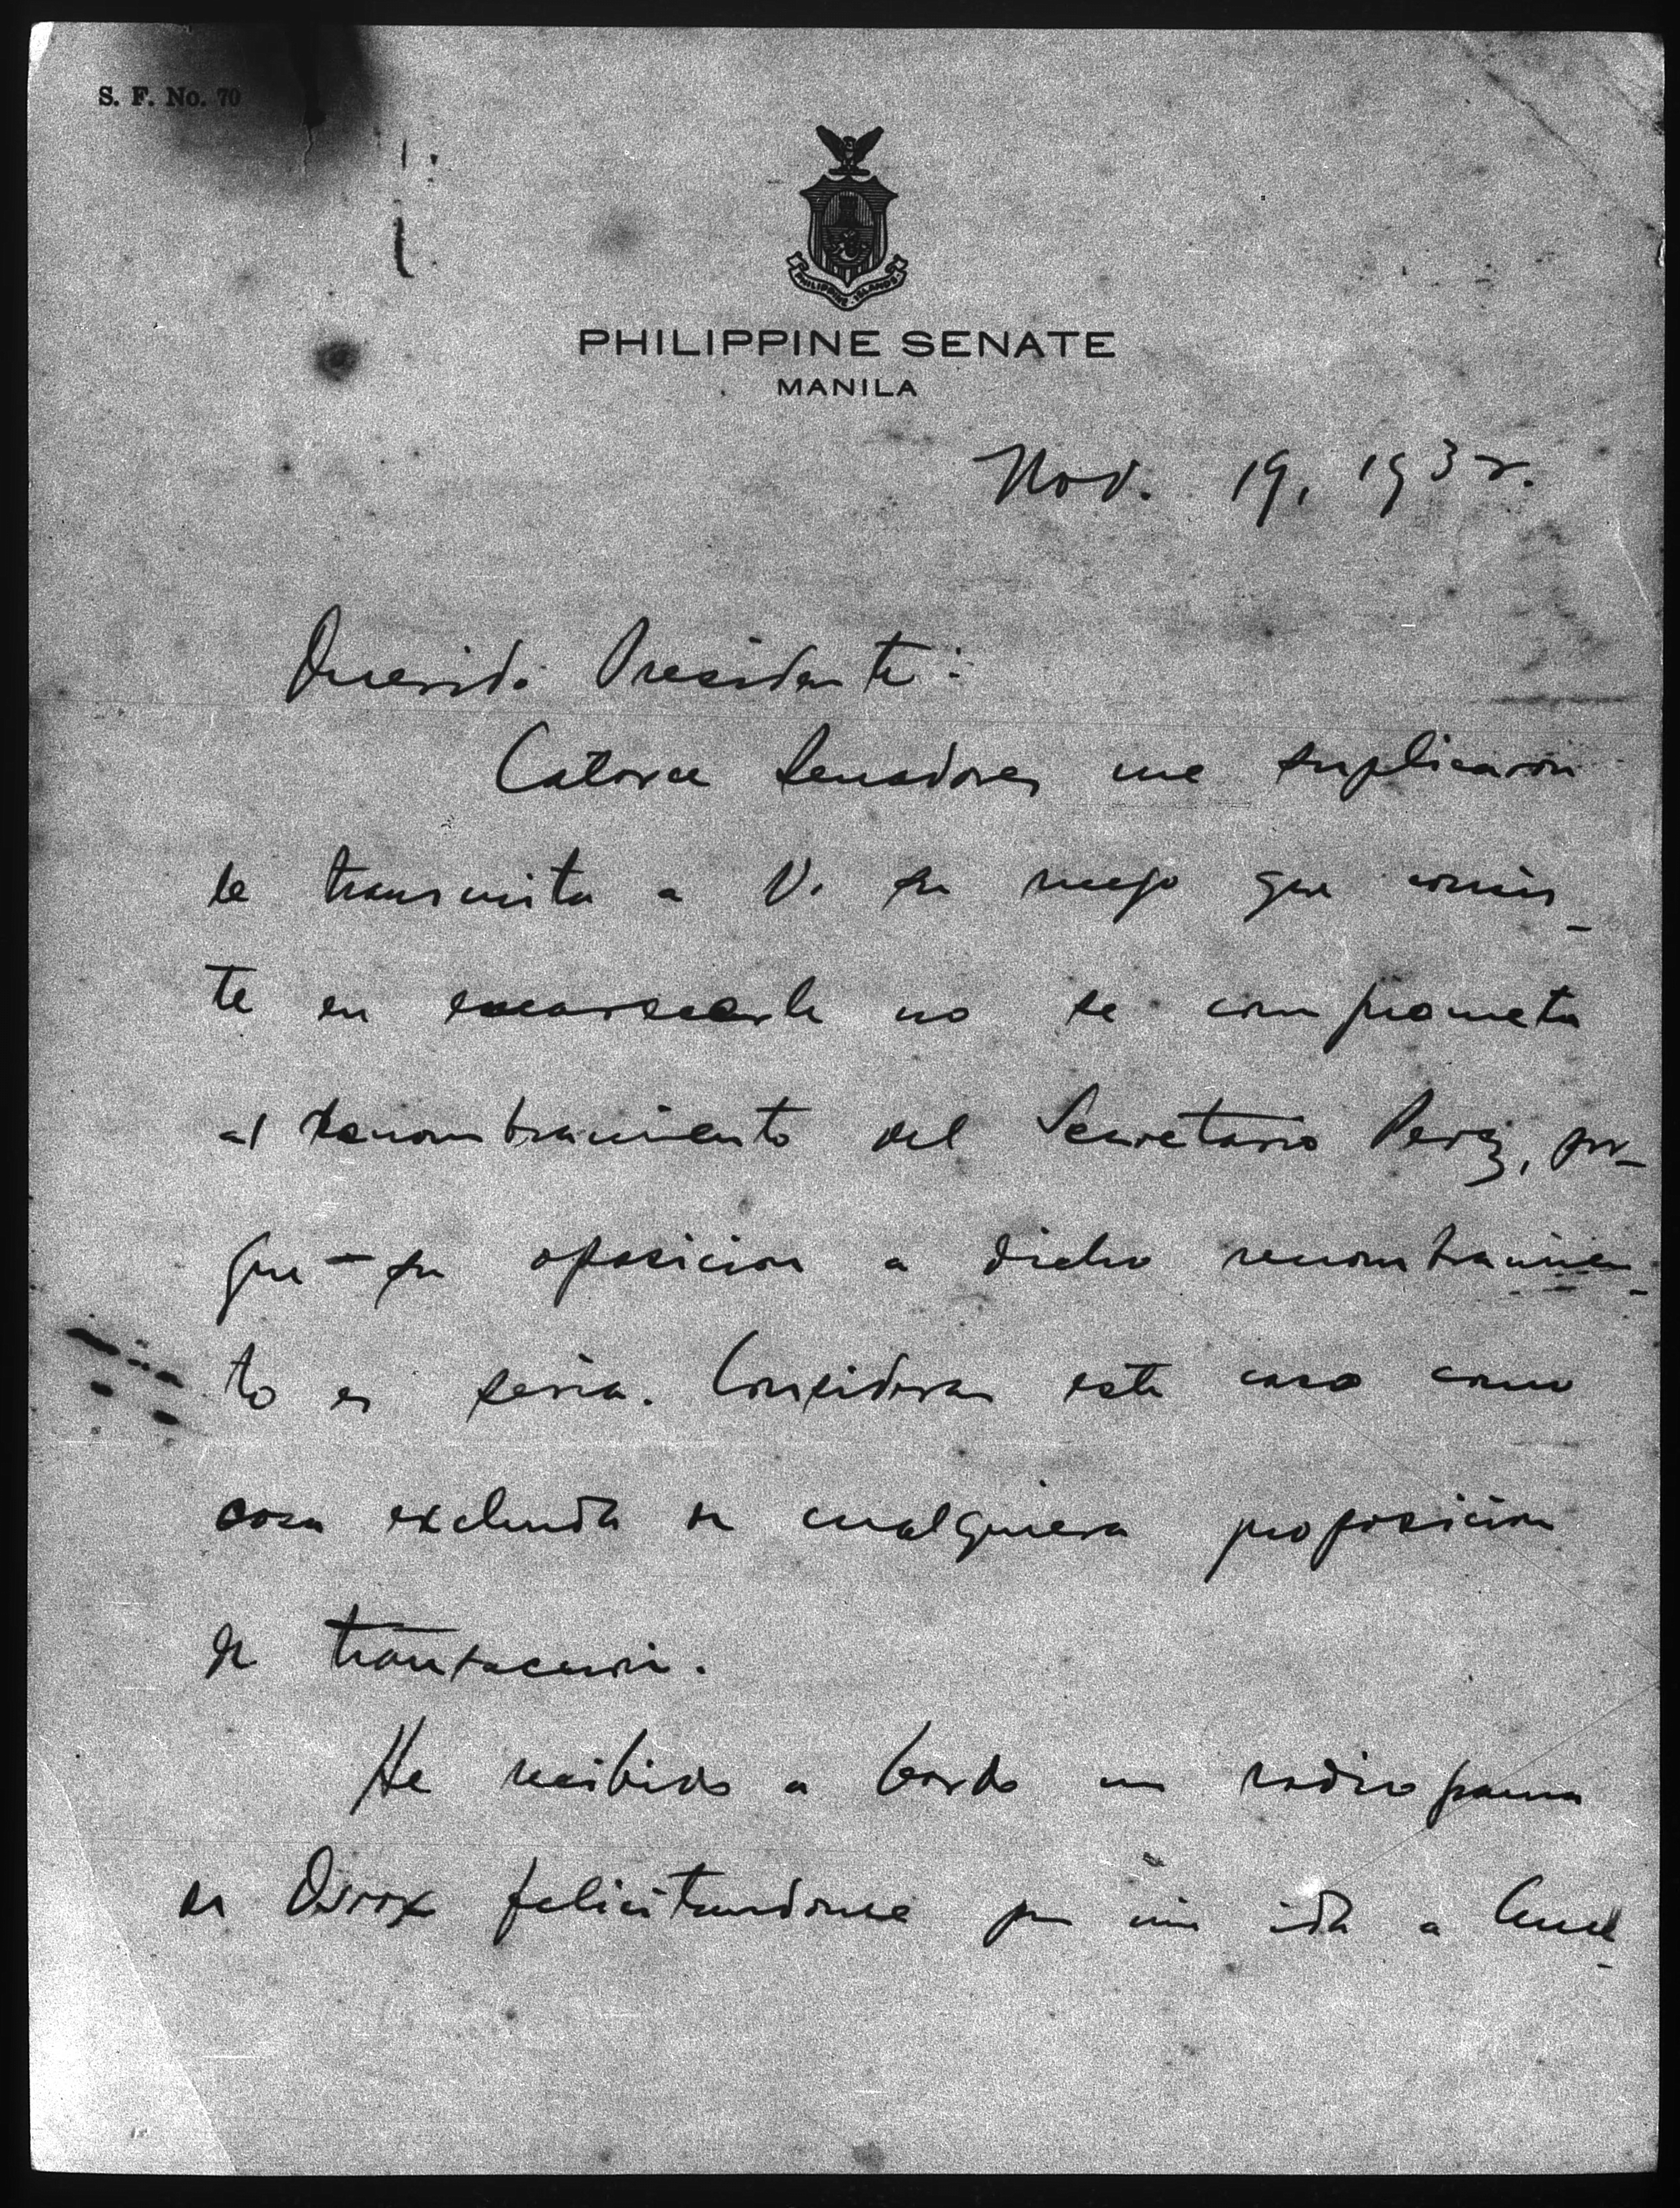 S. F. No. 70
PHILIPPINE ISLANDS
PHILIPPINE SENATE
MANILA
Nov. 19, 1932.
Querido Presidente:
Catorce Senadores me suplicaron
le transmita a V. su ruego que consis-
te en encarecerle no se comprometa
al renombramiento del Secretario Perez, por-
que su oposicion a dicho renombramien-
to es seria. Consideran este caso como
cosa excluida de cualquiera proposicion
de transaccion.
He recibido a bordo un radiograma
de felicitandome por mi ida a Ame-